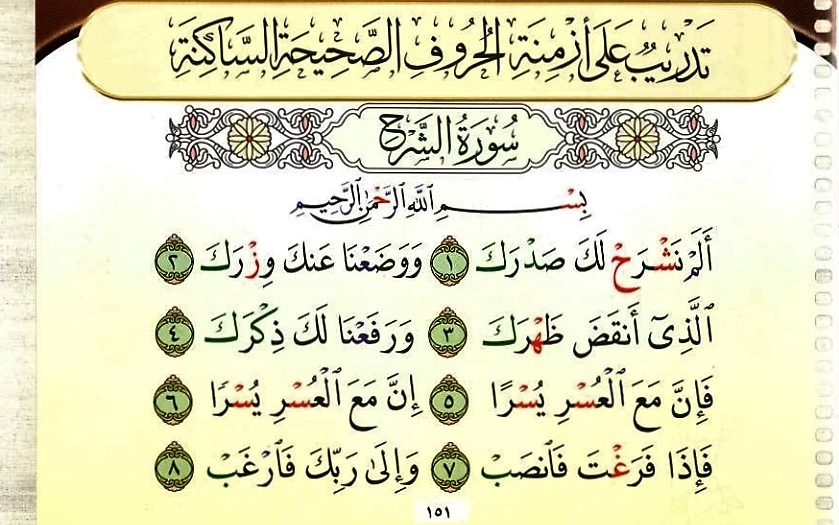 تَدْرِيبٌ عَلَى أَزْمِنَةِ الحُرُوفِ الصَّحِيحَةِ السَّاكِنَةِ
سُورَةُ الشَّرْحِ
بِسْمِ ٱللَّهِ ٱلرَّحْمَٰنِ ٱلرَّحِيمِ
أَلَمْ نَشْرَحْ لَكَ صَدْرَكَ ١ وَوَضَعْنَا عَنكَ وِزْرَكَ ٢
ٱلَّذِىٓ أَنقَضَ ظَهْرَكَ ٣ وَرَفَعْنَا لَكَ ذِكْرَكَ ٤
فَإِنَّ مَعَ ٱلْعُسْرِ يُسْرًا ٥ إِنَّ مَعَ ٱلْعُسْرِ يُسْرًا ٦
فَإِذَا فَرَغْتَ فَٱنصَبْ ٧ وَإِلَىٰ رَبِّكَ فَٱرْغَبْ ٨
١٥١